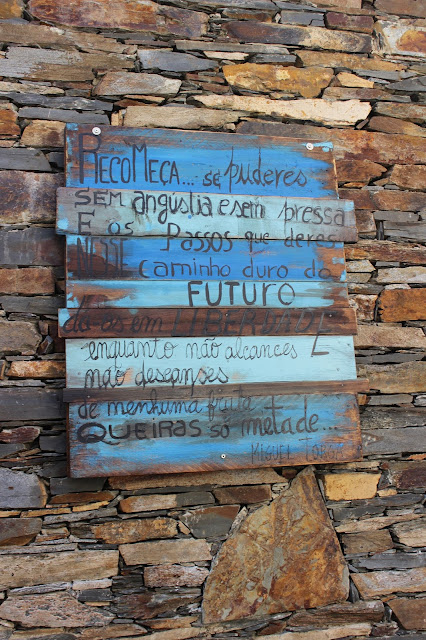 RECOMEÇA... se puderes
SEM angustia e sem pressa
E os Passos que deres
NESSE caminho duro do
FUTURO
dá-os em LIBERDADE
enquanto não alcances
não descanses
de nenhuma fruta
QUEIRAS só metade...
MIGUEL TORGA